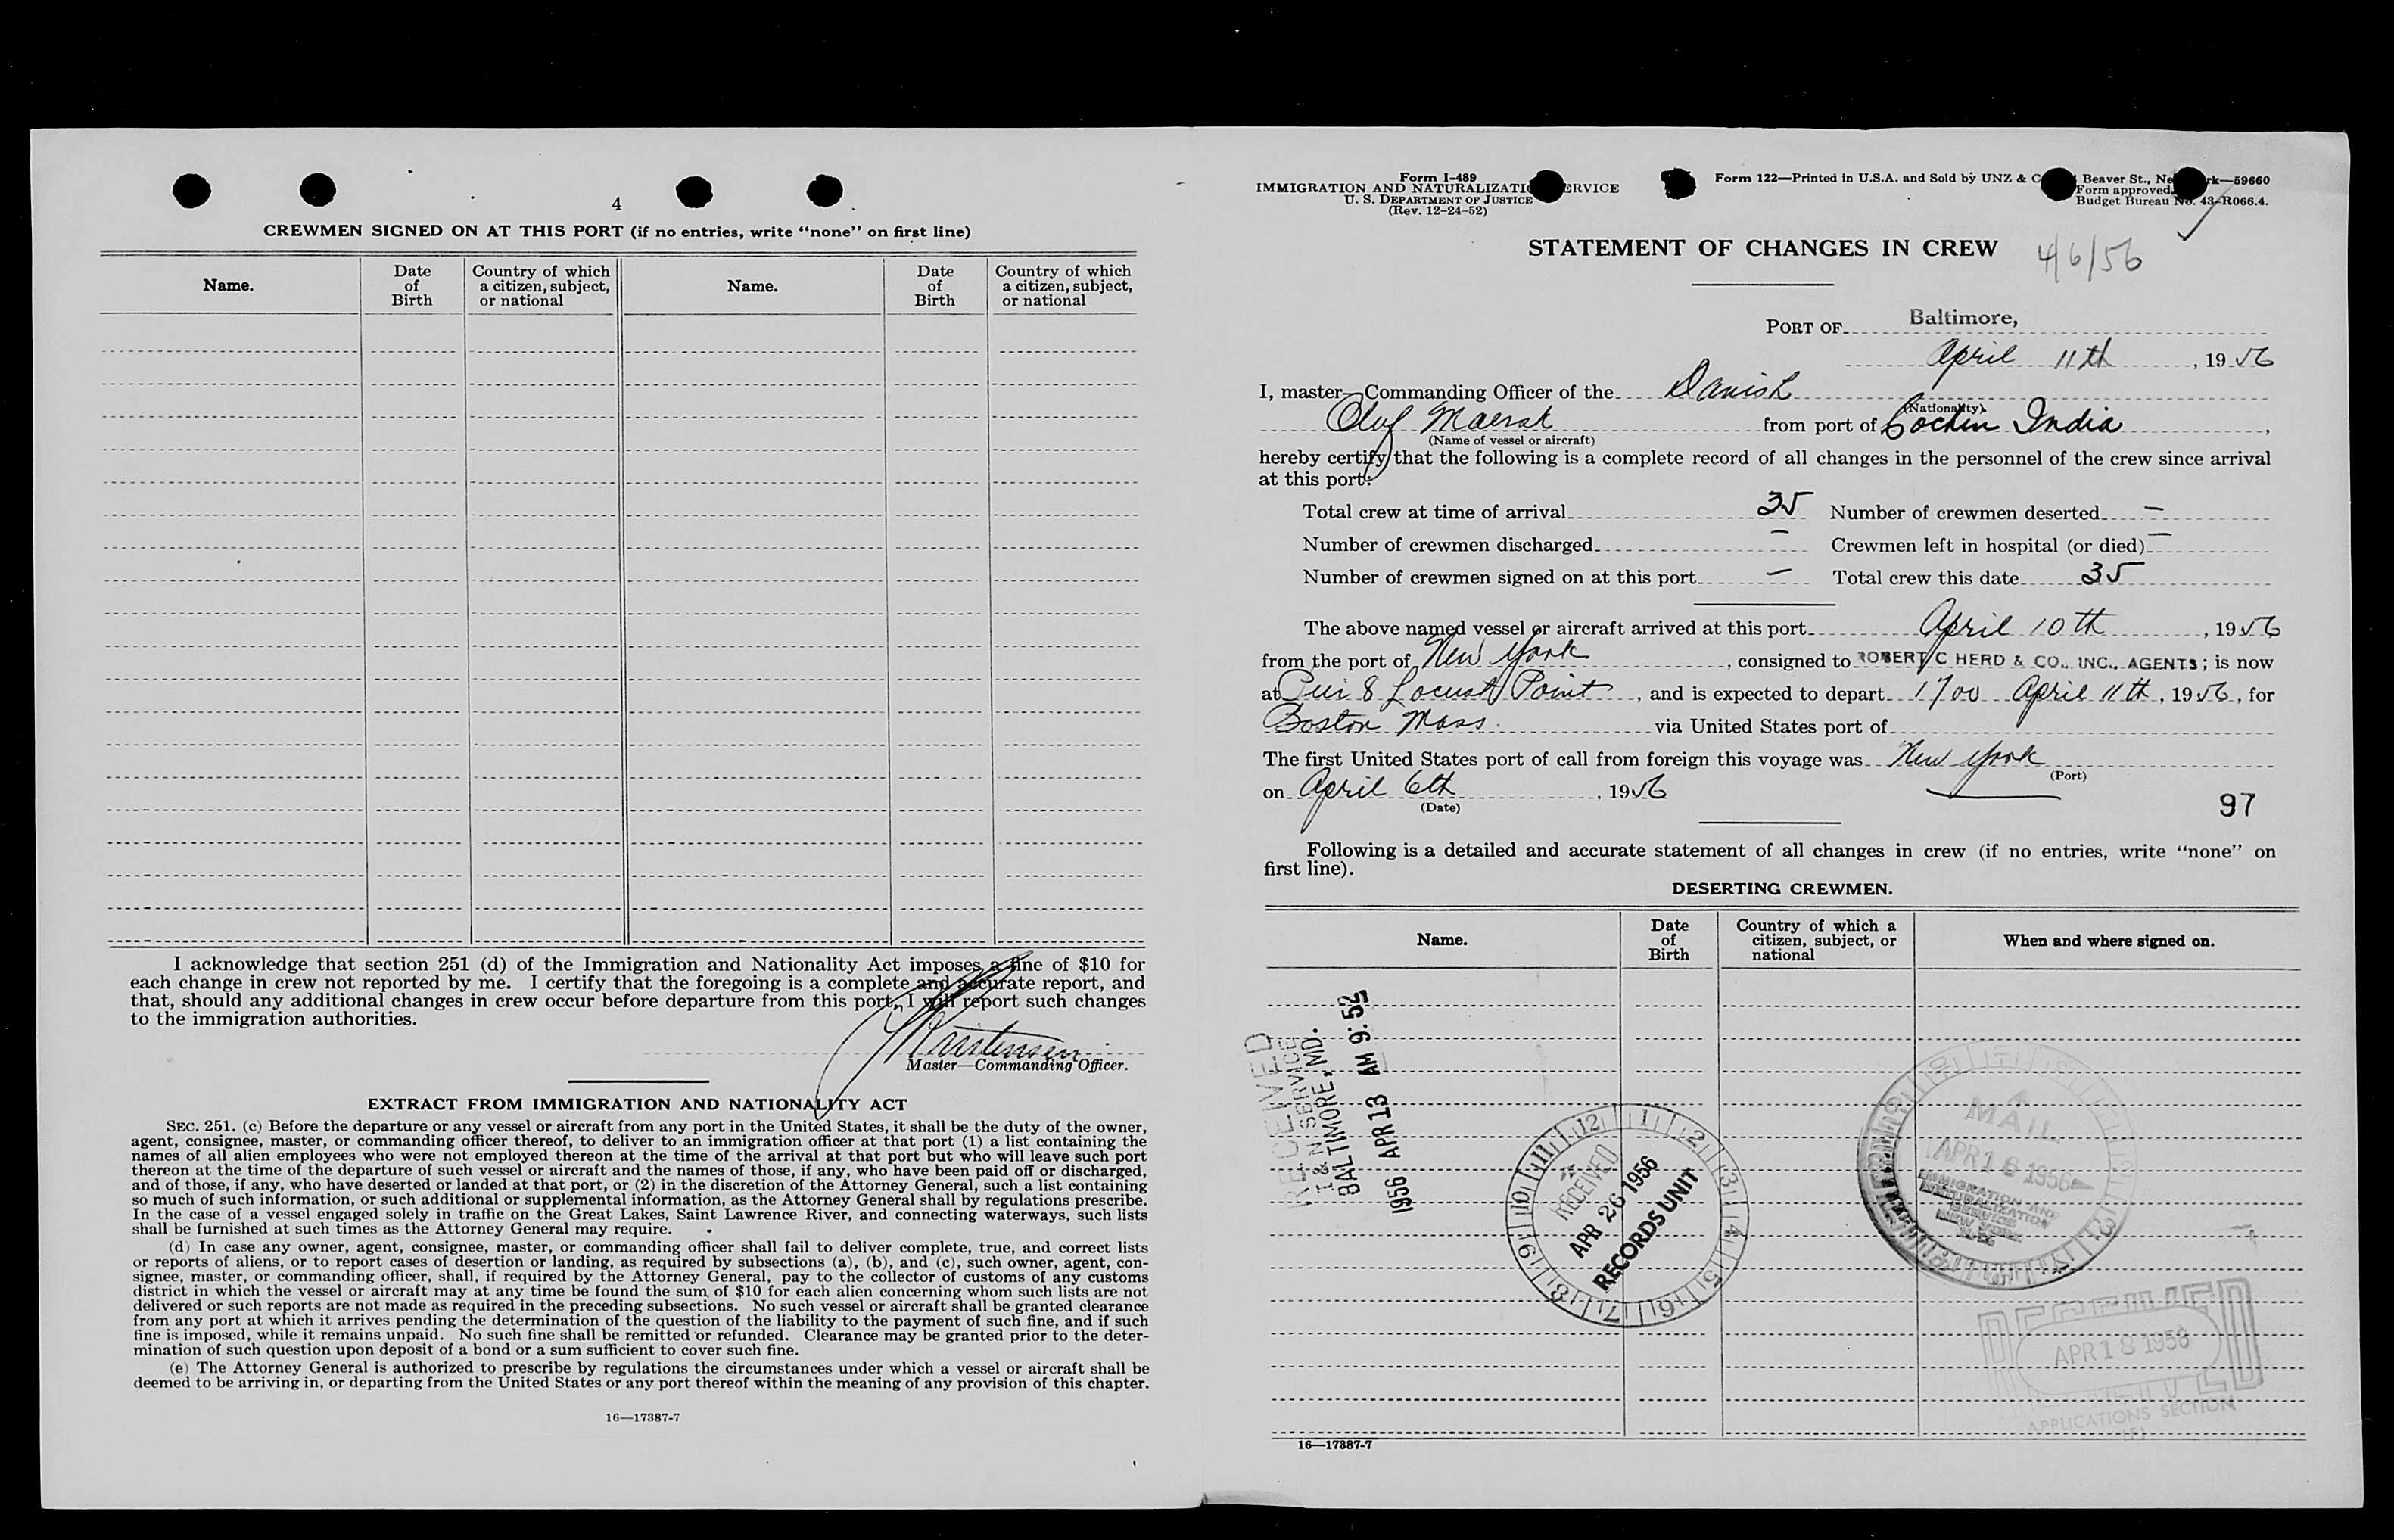 4
CREWMEN SIGNED ON AT THIS PORT (if no entries, write “none” on first line)
Name.
Date
of
Birth
Country of which
a citizen, subject,
or national
Name.
Date
of
Birth
Country of which
a citizen, subject,
or national
I acknowledge that section 251 (d) of the Immigration and Nationality Act imposes a fine of $10 for
each change in crew not reported by me. I certify that the foregoing is a complete and accurate report, and
that, should any additional changes in crew occur before departure from this port, I will report such changes
to the immigration authorities.
Master—Commanding Officer.
EXTRACT FROM IMMIGRATION AND NATIONALITY ACT
SEC. 251. (c) Before the departure or any vessel or aircraft from any port in the United States, it shall be the duty of the owner,
agent, consignee, master, or commanding officer thereof, to deliver to an immigration officer at that port (1) a list containing the
names of all alien employees who were not employed thereon at the time of the arrival at that port but who will leave such port
thereon at the time of the departure of such vessel or aircraft and the names of those, if any, who have been paid off or discharged,
and of those, if any, who have deserted or landed at that port, or (2) in the discretion of the Attorney General, such a list containing
so much of such information, or such additional or supplemental information, as the Attorney General shall by regulations prescribe.
In the case of a vessel engaged solely in traffic on the Great Lakes, Saint Lawrence River, and connecting waterways, such lists
shall be furnished at such times as the Attorney General may require.
(d) In case any owner, agent, consignee, master, or commanding officer shall fail to deliver complete, true, and correct lists
or reports of aliens, or to report cases of desertion or landing, as required by subsections (a), (b), and (c), such owner, agent, con-
signee, master, or commanding officer, shall, if required by the Attorney General, pay to the collector of customs of any customs
district in which the vessel or aircraft may at any time be found the sum of $10 for each alien concerning whom such lists are not
delivered or such reports are not made as required in the preceding subsections. No such vessel or aircraft shall be granted clearance
from any port at which it arrives pending the determination of the question of the liability to the payment of such fine, and if such
fine is imposed, while it remains unpaid. No such fine shall be remitted or refunded. Clearance may be granted prior to the deter-
mination of such question upon deposit of a bond or a sum sufficient to cover such fine.
(e) The Attorney General is authorized to prescribe by regulations the circumstances under which a vessel or aircraft shall be
deemed to be arriving in, or departing from the United States or any port thereof within the meaning of any provision of this chapter.
16—17387-7
Form I-489
IMMIGRATION AND NATURALIZATI ERVICE
U. S. DEPARTMENT OF JUSTICE
(Rev. 12-24-52)
Form 122—Printed in U.S.A. and Sold by UNZ & C Beaver St., Ne rk—59660
Form approved.
Budget Bureau No. 43-R066.4.
STATEMENT OF CHANGES IN CREW 4/6/56
PORT OF Baltimore,
April 11th, 1956
I, master—Commanding Officer of the Danish
(Nationality)
Oluf Maersk from port of Cochin India,
(Name of vessel or aircraft)
hereby certify that the following is a complete record of all changes in the personnel of the crew since arrival
at this port:
Total crew at time of arrival 35 Number of crewmen deserted —
Number of crewmen discharged — Crewmen left in hospital (or died) —
Number of crewmen signed on at this port — Total crew this date 35
The above named vessel or aircraft arrived at this port April 10th, 1956
from the port of New York, consigned to ROBERT C HERD & CO., INC., AGENTS; is now
at Pier 8 Locust Point, and is expected to depart 1700 April 11th, 1956, for
Boston Mass. via United States port of
The first United States port of call from foreign this voyage was New York
(Port)
on April 6th, 1956
(Date)
97
Following is a detailed and accurate statement of all changes in crew (if no entries, write “none” on
first line).
DESERTING CREWMEN.
Name.
Date
of
Birth
Country of which a
citizen, subject, or
national
When and where signed on.
RECEIVED
I & N SERVICE
BALTIMORE, MD.
1956 APR 13 AM 9:52
12 1 2 3 4 5 6 7 8 9 10 11
RECEIVED
APR 26 1956
RECORDS UNIT
MAIL
APR 16 1956
IMMIGRATION AND
NATURALIZATION
SERVICE
NEW YORK
RECEIVED
APR 18 1956
APPLICATIONS SECTION
16—17387-7